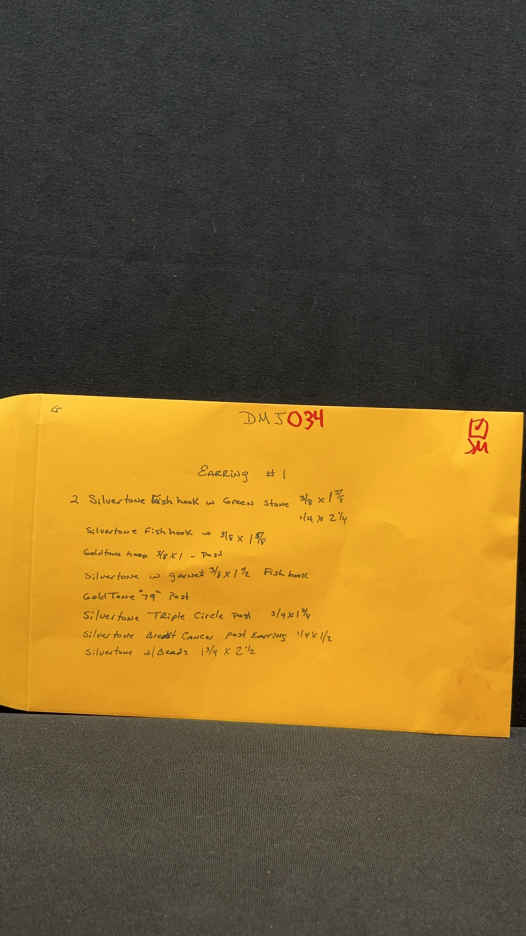 G
DMJ034
JM
EARRING #1
2 Silvertone Fish hook w Green Stone 3/8 x 1 5/8
1/4 x 2 1/4
Silvertone Fish hook w 3/8 x 1 5/8
Goldtone hoop 3/8 x 1 - Post
Silvertone w garnet 3/8 x 1 1/2 Fish hook
Gold Tone "79" Post
Silvertone Triple Circle Post 3/4 x 1 3/4
Silvertone Breast Cancer post Earring 1/4 x 1/2
Silvertone w/Beads 1 3/4 x 2 1/2